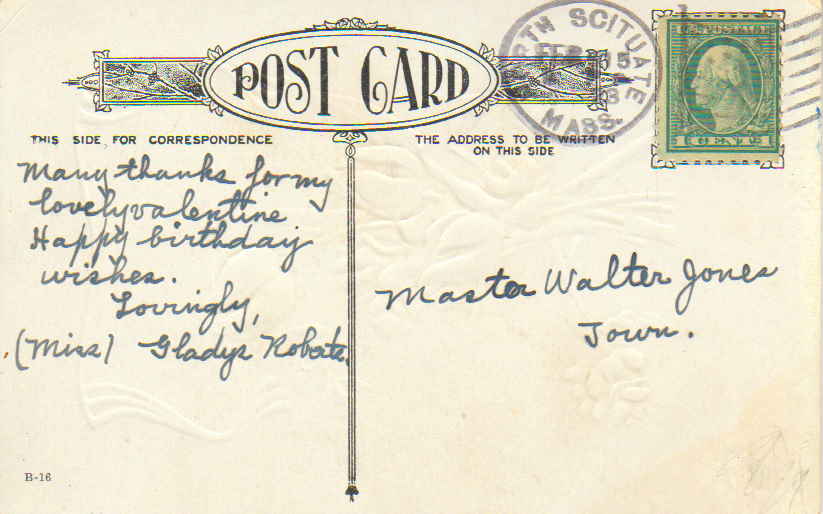 POST CARD
STH SCITUATE
FEB 15
MASS.
U.S. POSTAGE
1 CENT 1
THIS SIDE FOR CORRESPONDENCE
THE ADDRESS TO BE WRITTEN
ON THIS SIDE
Many thanks for my
lovely valentine
Happy birthday
wishes.
Lovingly,
(Miss) Gladys Roberts.
Master Walter Jones
Town.
B-16